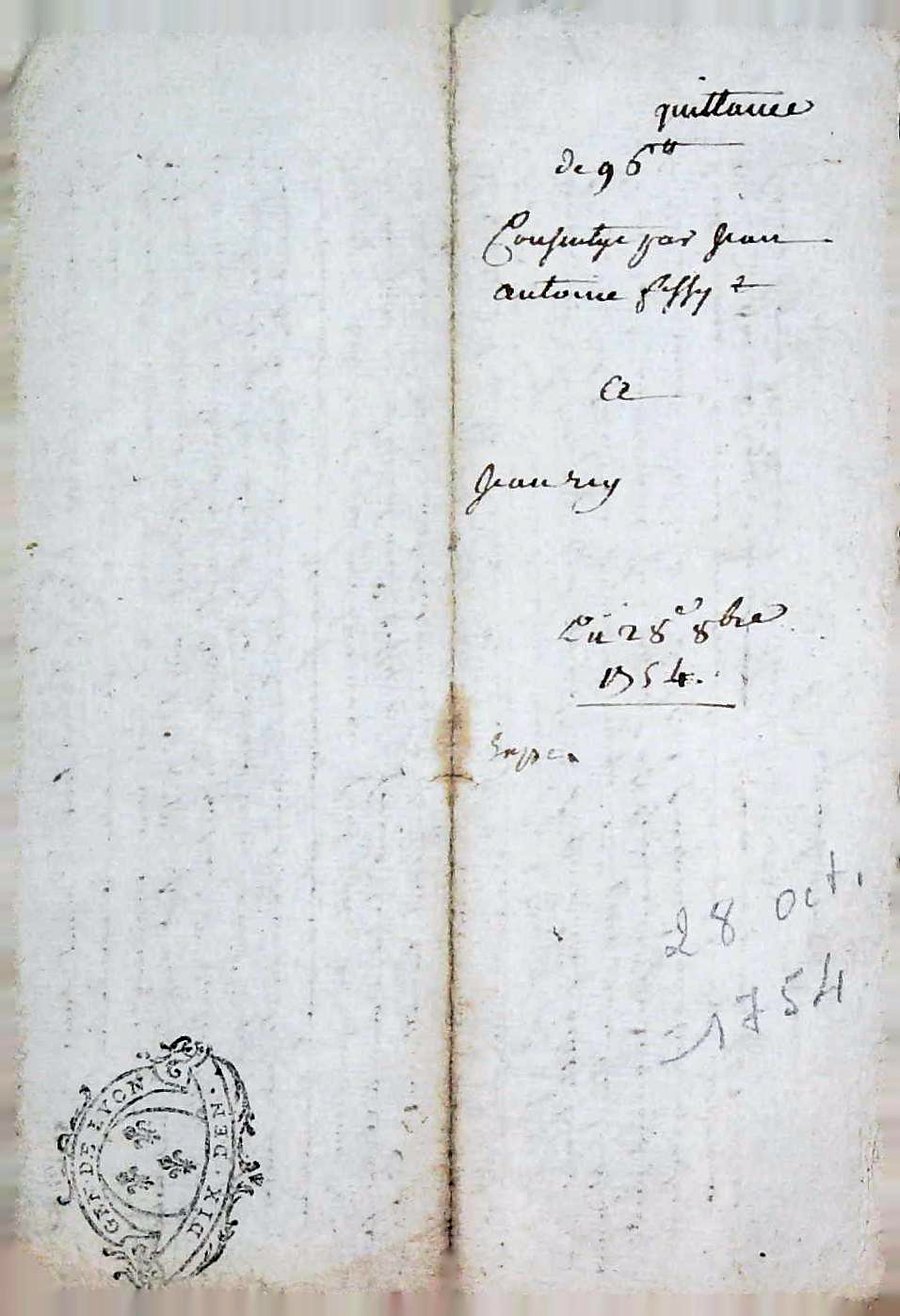 quittance
de 96 ᵗᵗ
Consentye par Jean
antoine fessy
a
Jean rey
Du 28ᵉ 8bre
1754.
28 oct.
1754
GEN. DE LYON
DIX DEN.